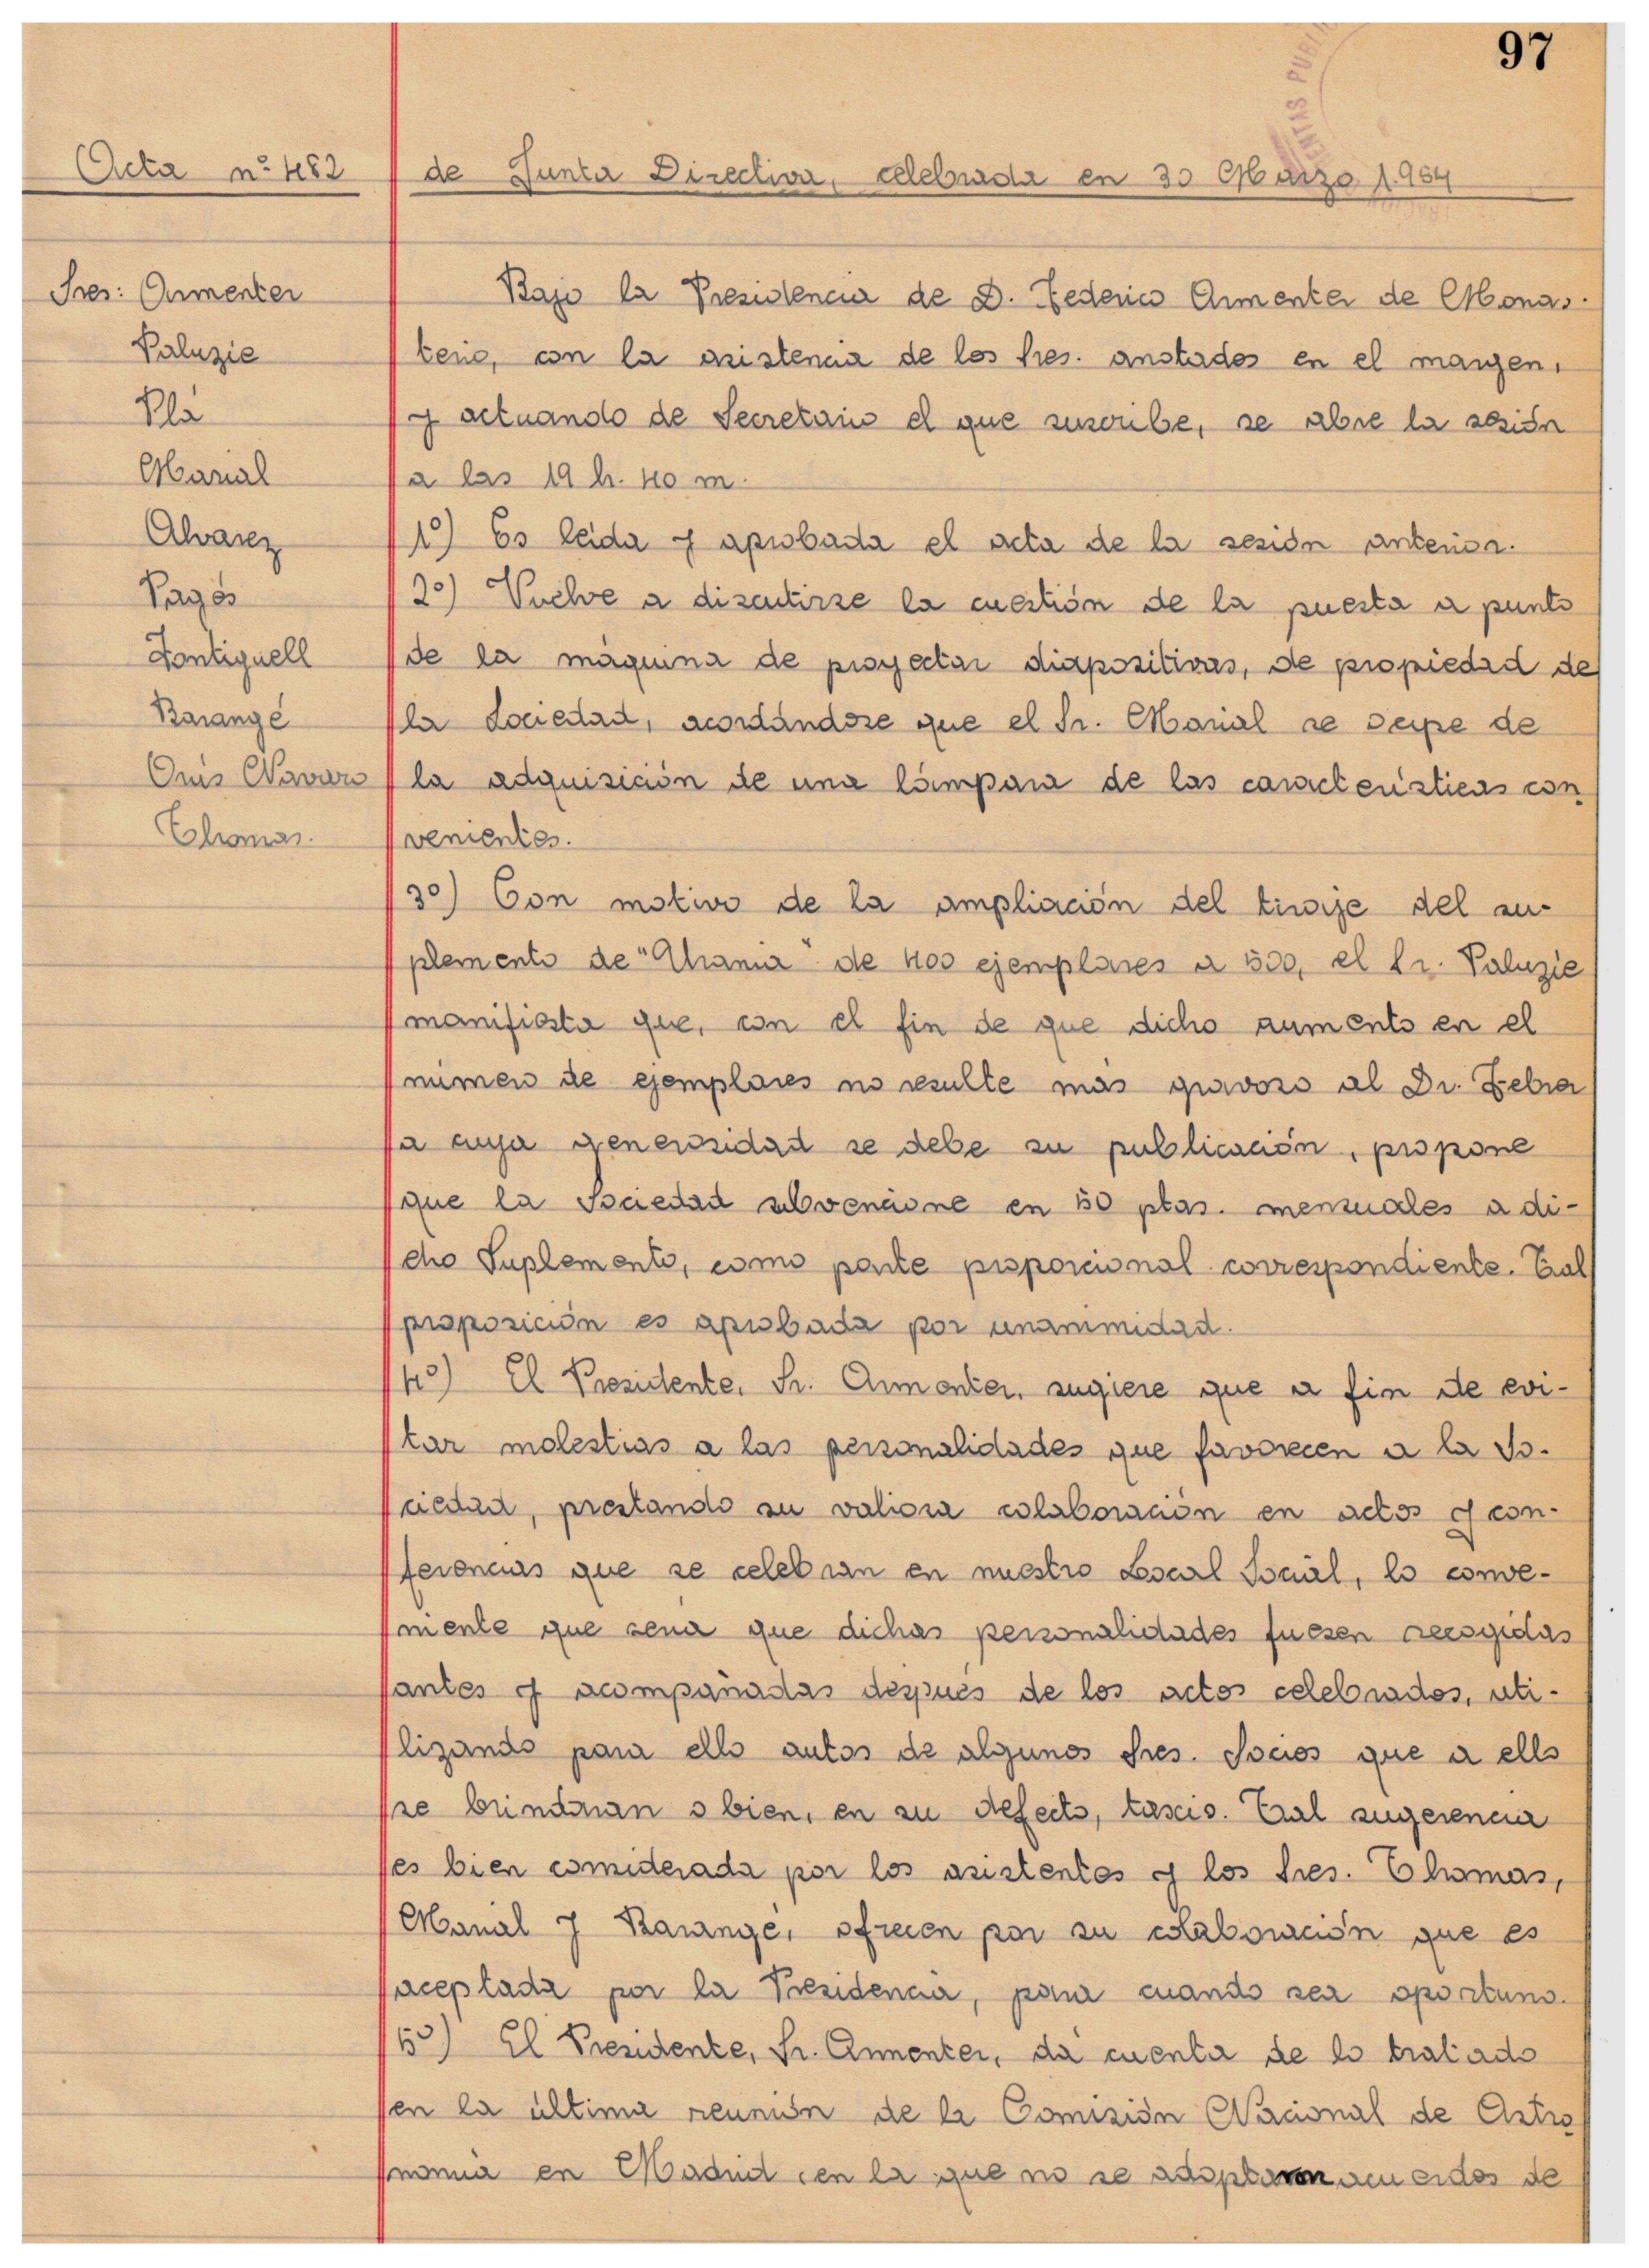 97
Acta nº 482 de Junta Directiva, celebrada en 30 Marzo 1.954
Sres: Armenter
Paluzie
Plá
Marial
Alvarez
Pagés
Fontiguell
Barangé
Orús Navarro
Thomas.
Bajo la Presidencia de D. Federico Armenter de Monas-
terio, con la asistencia de los Sres. anotados en el margen,
y actuando de Secretario el que suscribe, se abre la sesión
a las 19 h. 40 m.
1º) Es leida y aprobada el acta de la sesión anterior.
2º) Vuelve a discutirse la cuestión de la puesta a punto
de la máquina de proyectar diapositivas, de propiedad de
la Sociedad, acordándose que el Sr. Marial se ocupe de
la adquisición de una lámpara de las características con
venientes.
3º) Con motivo de la ampliación del tiraje del su-
plemento de "Urania" de 400 ejemplares a 500, el Sr. Paluzie
manifiesta que, con el fin de que dicho aumento en el
número de ejemplares no resulte más gravoso al Dr. Febrer
a cuya generosidad se debe su publicación, propone
que la Sociedad subvencione en 50 ptas. mensuales a di-
cho Suplemento, como parte proporcional correspondiente. Tal
proposición es aprobada por unanimidad.
4º) El Presidente, Sr. Armenter, sugiere que a fin de evi-
tar molestias a las personalidades que favorecen a la So-
ciedad, prestando su valiosa colaboración en actos y con-
ferencias que se celebran en nuestro Local Social, lo conve-
niente que sería que dichas personalidades fuesen recogidas
antes y acompañadas después de los actos celebrados, uti-
lizando para ello autos de algunos Sres. Socios que a ello
se brindaran o bien, en su defecto, taxis. Tal sugerencia
es bien considerada por los asistentes y los Sres. Thomas,
Marial y Barangé, ofrecen por su colaboración que es
aceptada por la Presidencia, para cuando sea oportuno.
5º) El Presidente, Sr. Armenter, dá cuenta de lo tratado
en la última reunión de la Comisión Nacional de Astro
nomía en Madrid en la que no se adoptaron acuerdos de